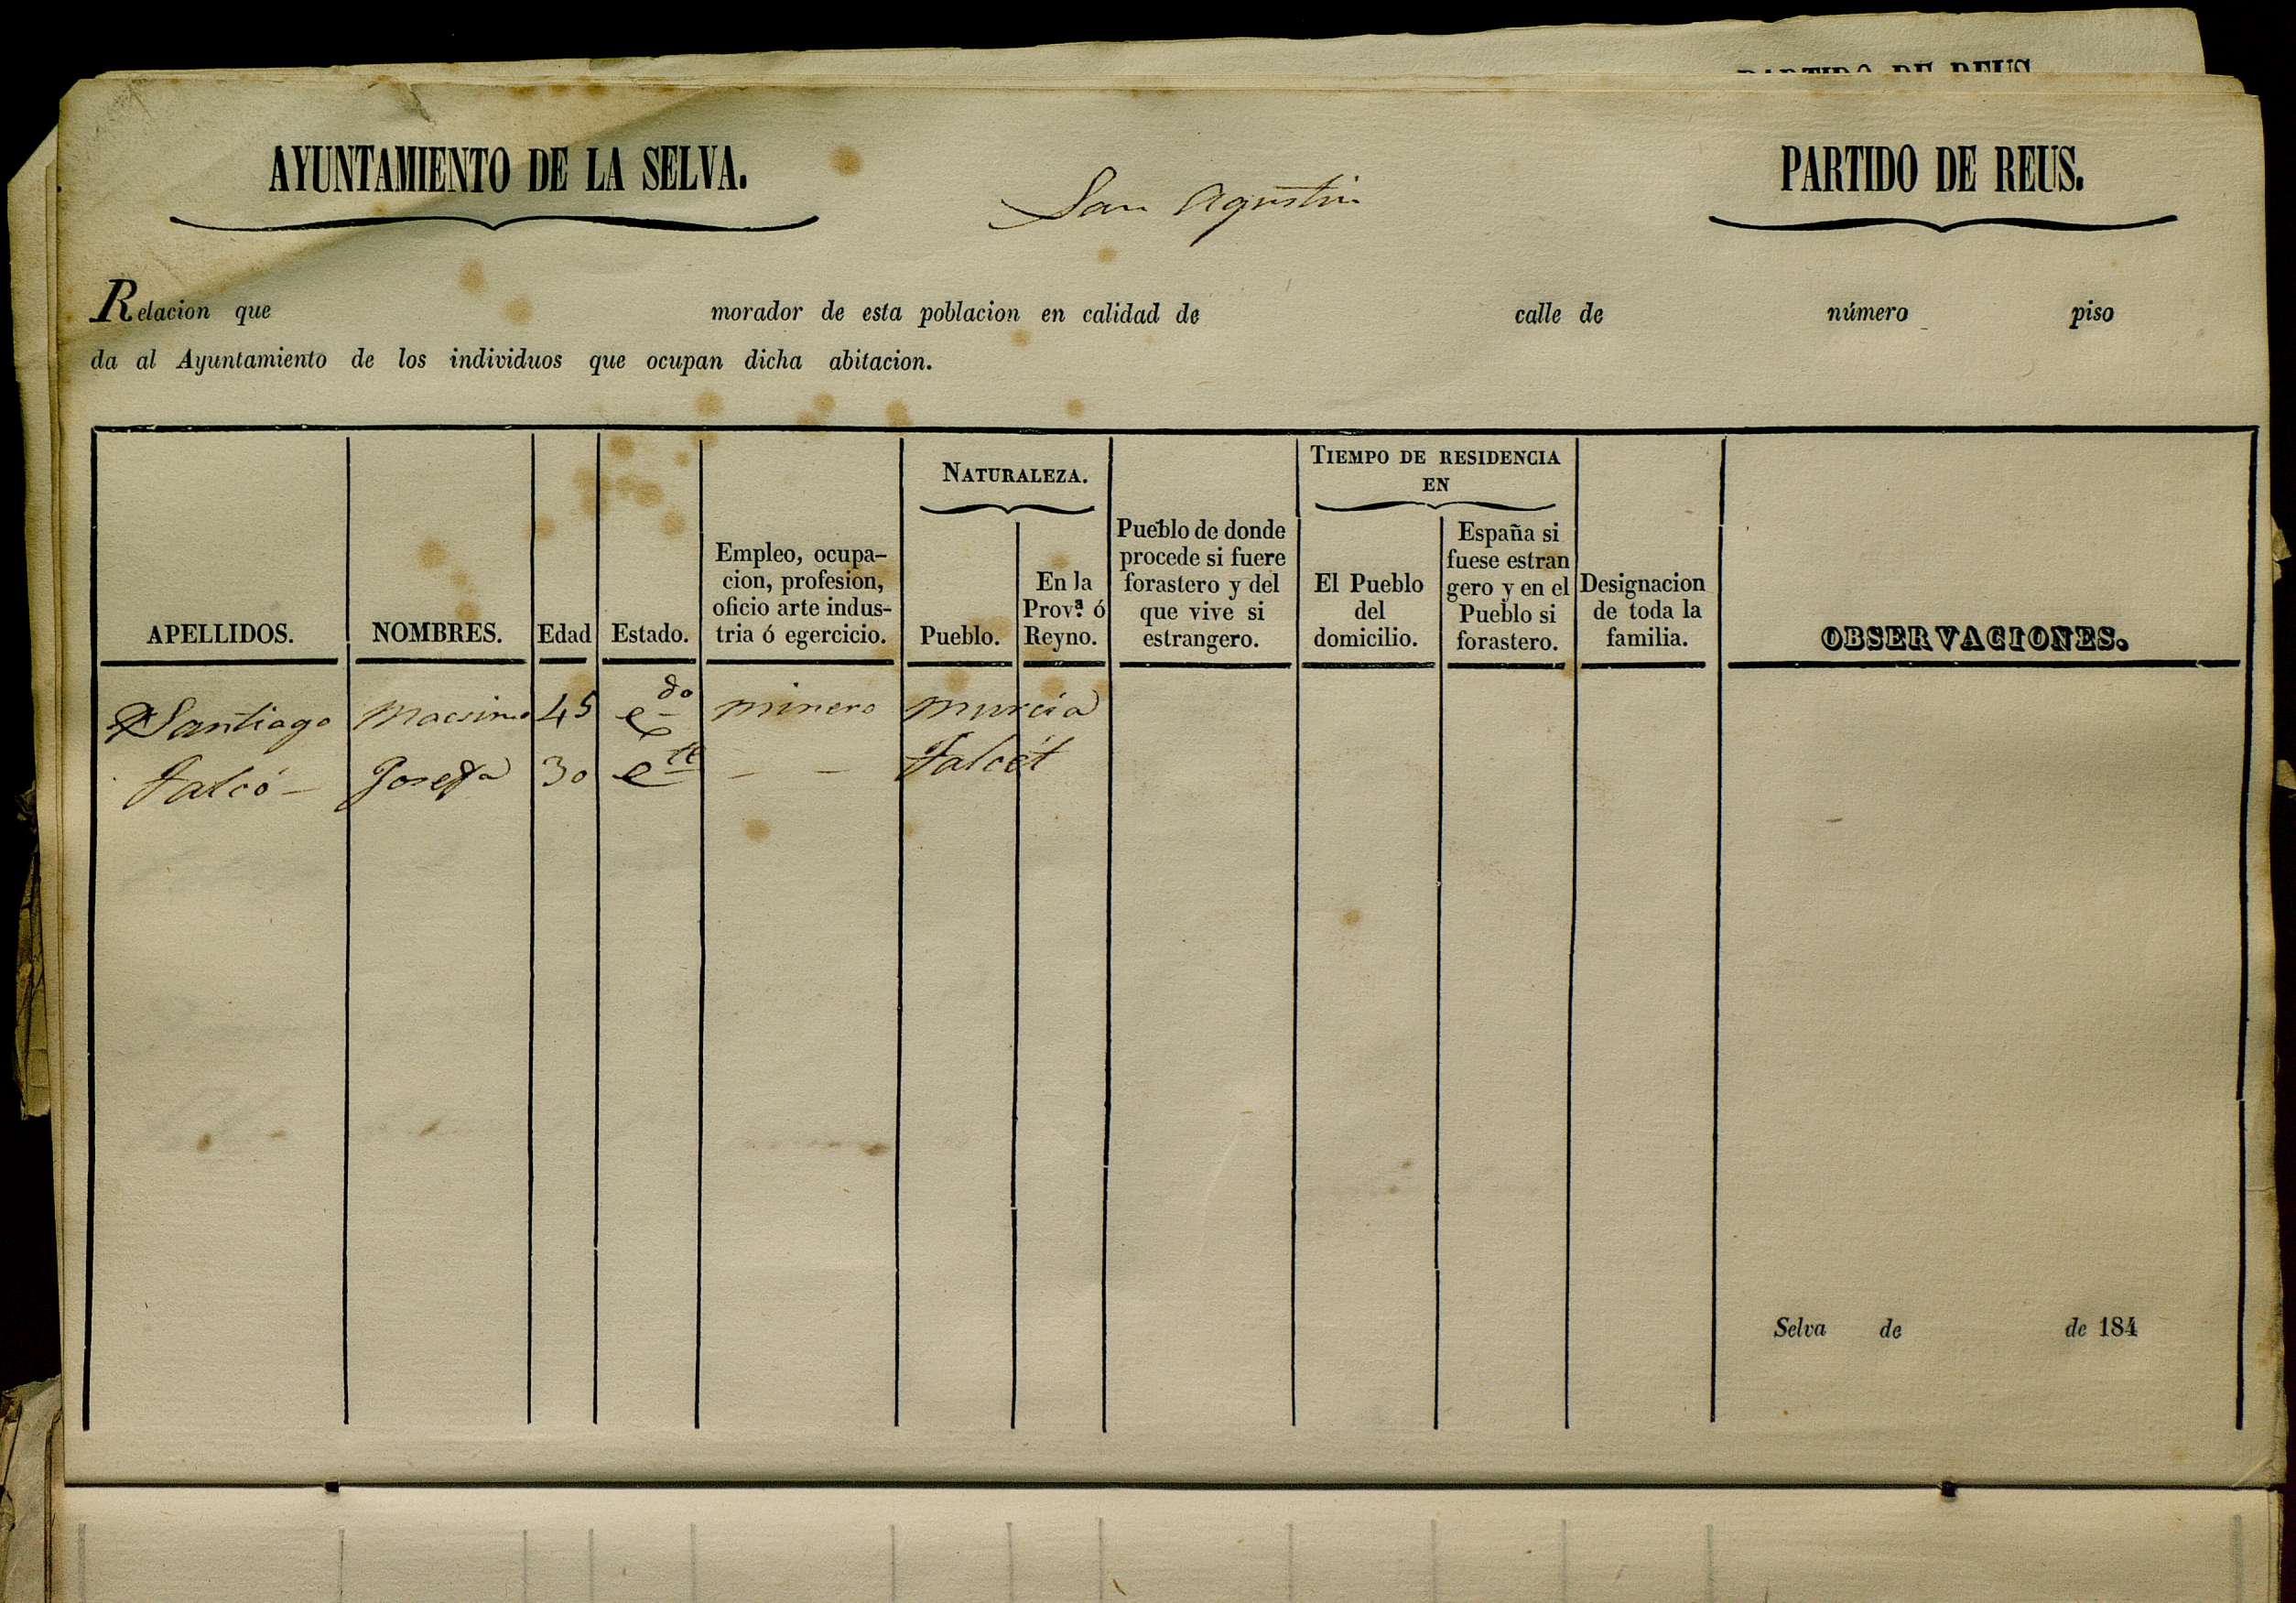 PARTIDO DE REUS
AYUNTAMIENTO DE LA SELVA.
San Agustin
PARTIDO DE REUS.
Relacion que morador de esta poblacion en calidad de calle de número piso
da al Ayuntamiento de los individuos que ocupan dicha abitacion.
APELLIDOS.
NOMBRES.
Edad
Estado.
Empleo, ocupa-
cion, profesion,
oficio arte indus-
tria ó egercicio.
NATURALEZA.
Pueblo.
En la
Prov.ª ó
Reyno.
Pueblo de donde
procede si fuere
forastero y del
que vive si
estrangero.
TIEMPO DE RESIDENCIA
EN
El Pueblo
del
domicilio.
España si
fuese estran
gero y en el
Pueblo si
forastero.
Designacion
de toda la
familia.
OBSERVACIONES.
Santiago Macsimo 45 c do minero Murcia
Falcó - Josefa 30 c te - - Falcét
Selva de de 184